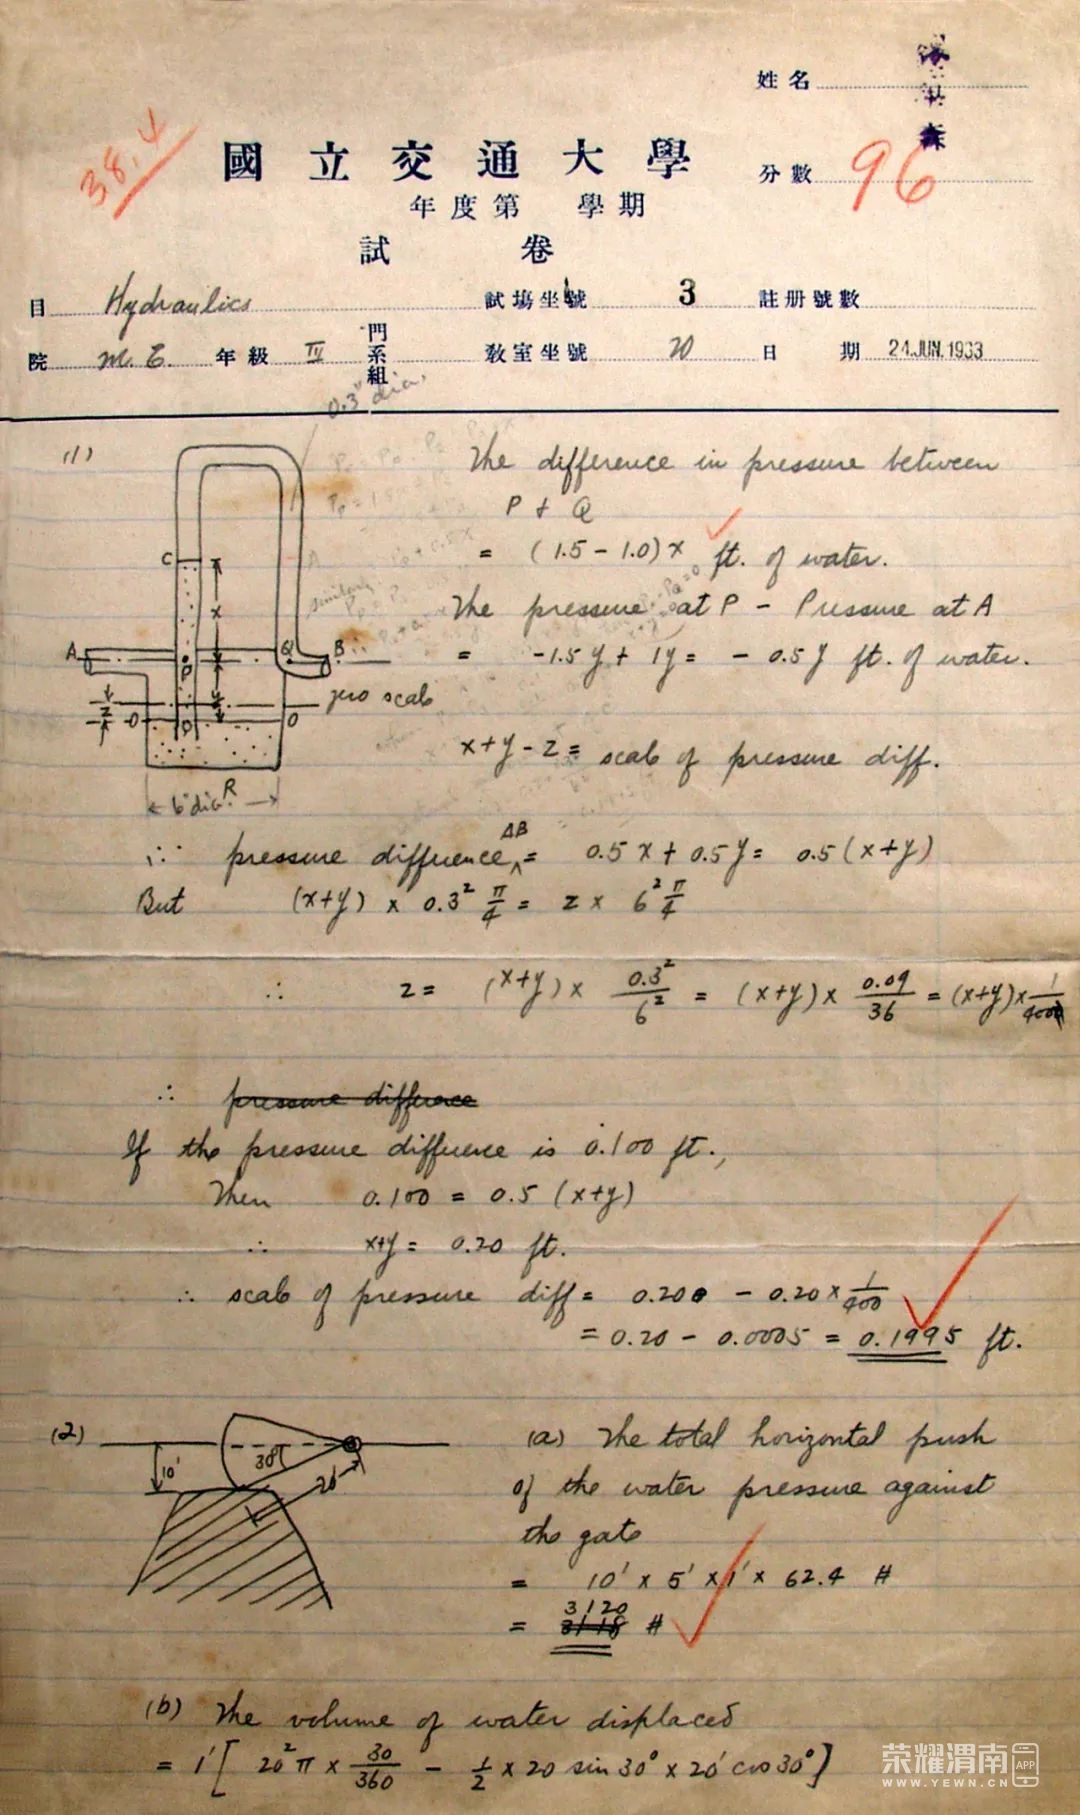 姓名
38.4
國立交通大學
分數 96
年度第 學期
試 卷
目 Hydraulics 試場坐號 3 註册號數
院 M.E. 年級 IV 門系組 教室坐號 20 日期 24.JUN.1933
0.3" dia.
(1)
The difference in pressure between
P + Q
= (1.5 - 1.0)x ft. of water.
The pressure at P - Pressure at A
= -1.5y + 1y = - 0.5y ft. of water.
C
x
A
P
Q
B
y
z
0
0
zero scale
R
6" dia.
x+y-z = scale of pressure diff.
∴ pressure difference AB = 0.5x + 0.5y = 0.5(x+y)
But (x+y) × 0.3² π/4 = z × 6² π/4
∴ z = (x+y) × 0.3²/6² = (x+y) × 0.09/36 = (x+y) × 1/400
∴ pressure difference
If the pressure difference is 0.100 ft.,
Then 0.100 = 0.5 (x+y)
∴ x+y = 0.20 ft.
∴ scale of pressure diff = 0.200 - 0.20 × 1/400
= 0.20 - 0.0005 = 0.1995 ft.
(2)
10'
30°
20'
(a) The total horizontal push
of the water pressure against
the gate
= 10' × 5' × 1' × 62.4 #
= 3120 #
(b) The volume of water displaced
= 1' [ 20² π × 30/360 - 1/2 × 20 sin 30° × 20' cos 30° ]
荣耀渭南 APP
WWW.YEWN.CN